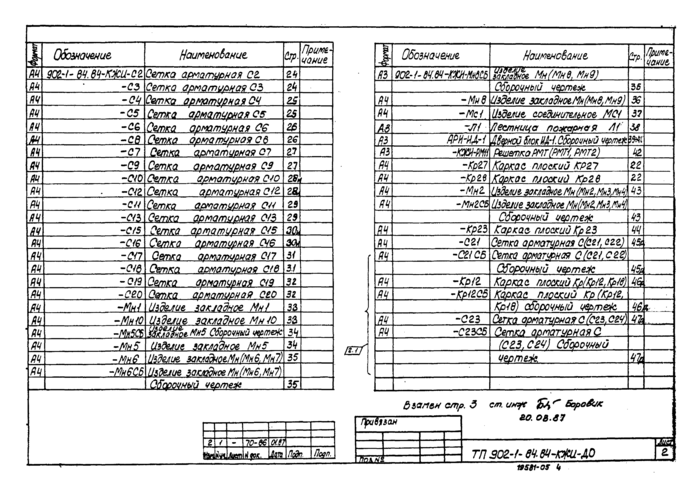 Формат Обозначение Наименование Стр. Приме-
чание
А4 902-1-84.84-КЖИ-С2 Сетка арматурная С2 24
А4 -С3 Сетка арматурная С3 24
А4 -С4 Сетка арматурная С4 25
А4 -С5 Сетка арматурная С5 25
А4 -С6 Сетка арматурная С6 26
А4 -С8 Сетка арматурная С8 26
А4 -С7 Сетка арматурная С7 27
А4 -С9 Сетка арматурная С9 27
А4 -С10 Сетка арматурная С10
А4 -С12 Сетка арматурная С12
А4 -С11 Сетка арматурная С11 29
А4 -С13 Сетка арматурная С13 29
А4 -С15 Сетка арматурная С15
А4 -С16 Сетка арматурная С16
А4 -С17 Сетка арматурная С17 31
А4 -С18 Сетка арматурная С18 31
А4 -С19 Сетка арматурная С19 32
А4 -С20 Сетка арматурная С20 32
А4 -Мн1 Изделие закладное Мн1 33
А4 -Мн10 Изделие закладное Мн10 33
А4 -Мн5СБ Изделие закладное Мн5 Сборочный чертеж 34
А4 -Мн5 Изделие закладное Мн5 34
А4 -Мн6 Изделие закладное Мн(Мн6,Мн7) 35
А4 -Мн6СБ Изделие закладное Мн(Мн6,Мн7)
Сборочный чертеж 35
Формат Обозначение Наименование Стр. Приме-
чание
А3 902-1-84.84-КЖИ-Мн8СБ Изделие закладное Мн(Мн8, Мн9)
Сборочный чертеж 36
А4 -Мн8 Изделие закладное Мн(Мн8,Мн9) 36
А4 -Мс1 Изделие соединительное МС1 37
-Л1 Лестница пожарная Л1 38
А3 АРИ-ИД-1 Дверной блок ИД-1. Сборочный чертеж
А3 -КЖИ-РМТ1 Решетка РМТ (РМТ1, РМТ2) 42
А4 -Кр27 Каркас плоский КР27 22
А4 -Кр28 Каркас плоский Кр28 22
А4 -Мн2 Изделие закладное Мн(Мн2,Мн3,Мн4) 43
А4 -Мн2СБ Изделие закладное Мн(Мн2,Мн3,Мн4)
Сборочный чертеж 43
А4 -Кр23 Каркас плоский Кр23 44
А4 -С21 Сетка арматурная С (С21, С22)
А4 -С21СБ Сетка арматурная С (С21, С22)
Сборочный чертеж
А4 -Кр12 Каркас плоский Кр(Кр12, Кр18)
А4 -Кр12СБ Каркас плоский Кр (Кр12,
Кр18) сборочный чертеж
А4 -С23 Сетка арматурная С (С23, С24)
А4 -С23СБ Сетка арматурная С
(С23, С24) Сборочный
чертеж
Взамен стр. 3 ст. инж Боровик
20.08.87
2 1 - 70-86 01.87
Изм Лист № док. Дата Подп.
Привязан
ТП 902-1-84.84-КЖИ-ДО
Лист
2
19581-05 4